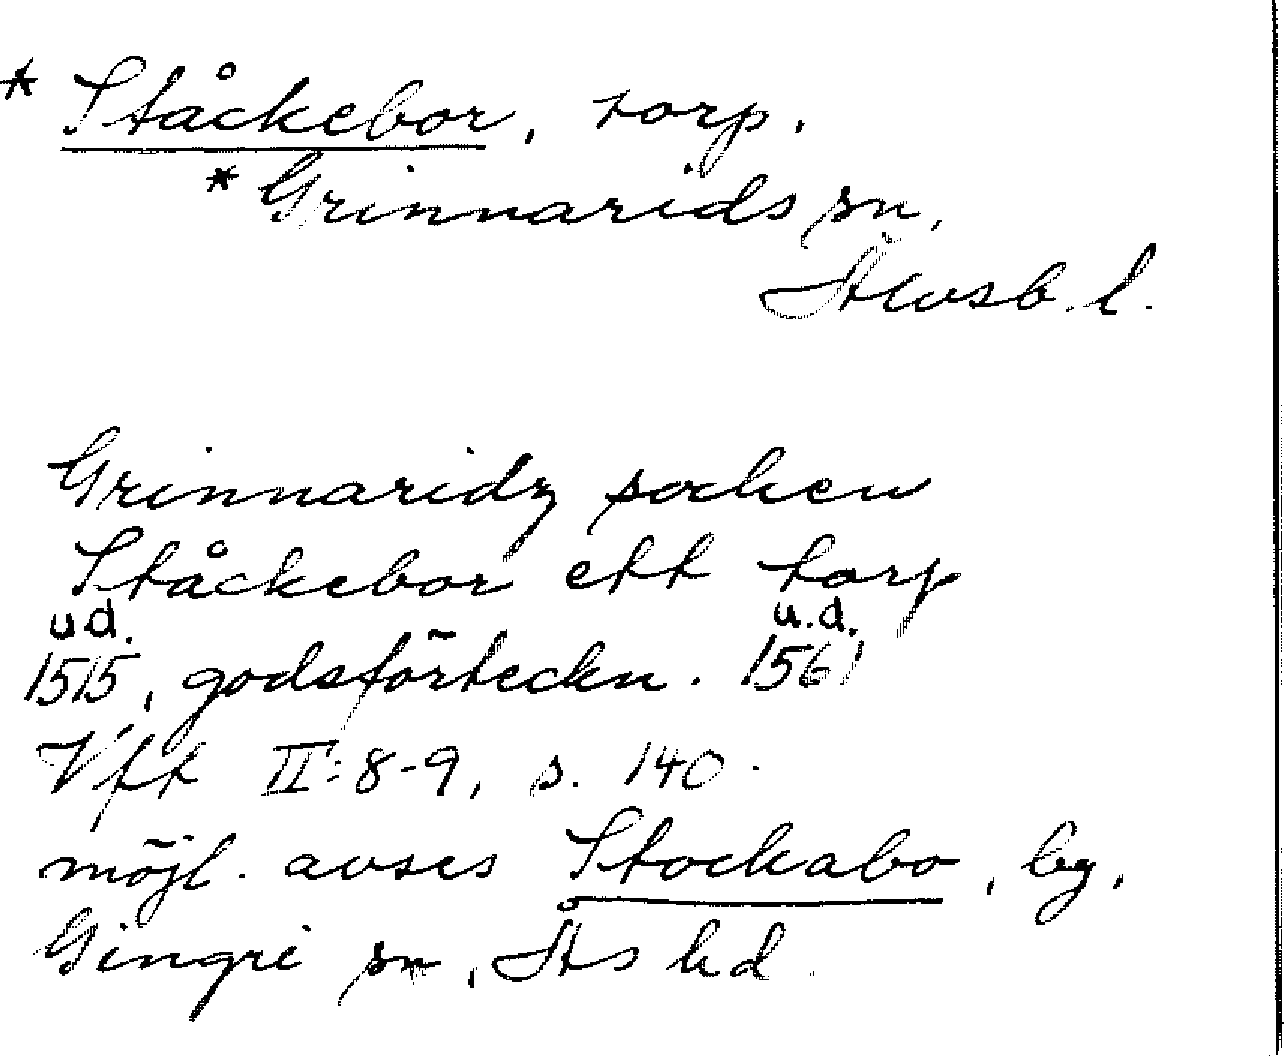 * Ståckebor, torp.
* Grinnarids sn,
Älvsb. l.
Grinnaridz socken
Ståckebor ett torp
u.d. u.d.
1515, godsförteckn. 1561
Vft II:8-9, s. 140.
möjl. avses Stockabo, by,
Gingri sn, Ås hd.